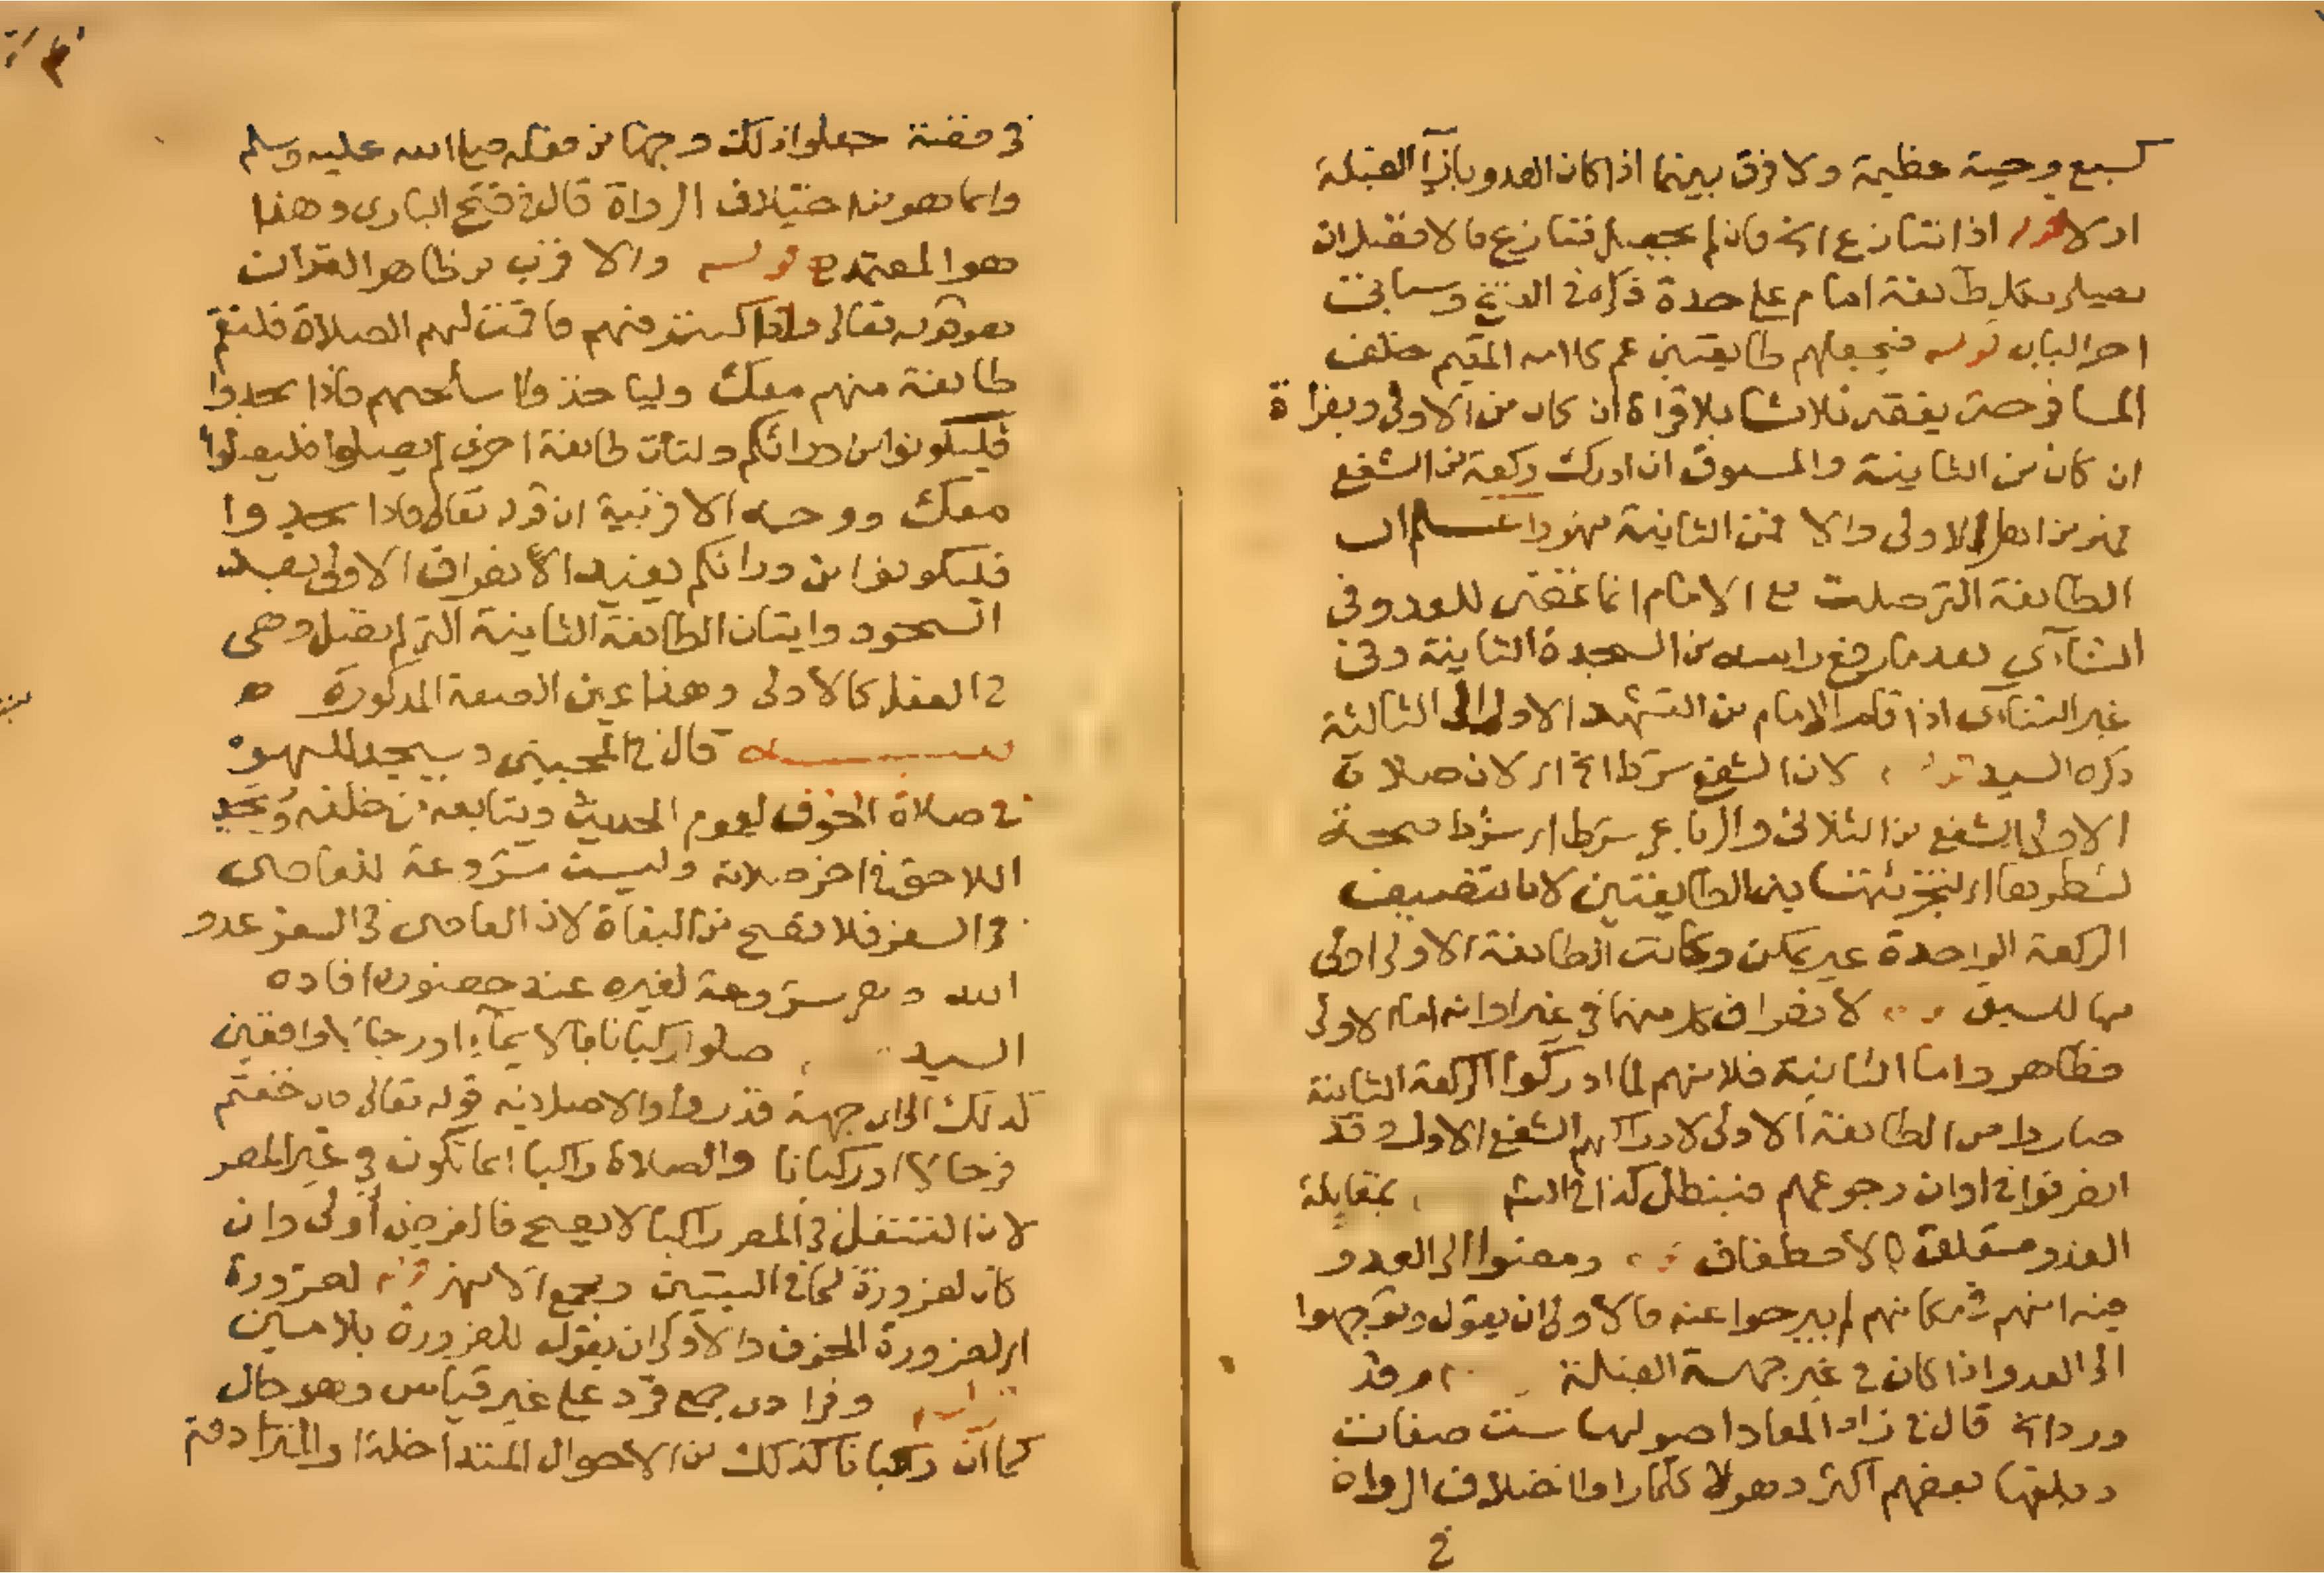 كسبع وحية عظيمة ولا فرق بينما اذا كان العدو بازآ القبلة
او لا قوله اذا تنازع الخ فان لم يحصل تنازع فالافضل ان
يصلي بكل طائفة امام على حدة ذكره في الفتح وسياتي
اخر الباب قوله فيجعلهم طايفتين عم كلامه المقيم خلف
المسافر حتى يقضي ثلاثا بلا قراءة ان كان من الاولى وبقراة
ان كان من الثانية والمسبوق ان ادرك ركعة من الشفع
فهو من اهل الاولى والا فمن الثانية نهر واعلم ان
الطائفة التي صلت مع الامام انما تمضي للعدو في
الثنآي بعد ما رفع راسه من السجدة الثانية وفي
غير الثنآي اذا قام الامام من التشهد الاول الى الثالثة
ذكره السيد قوله لان الشفع شرط الخ اي لان صلاة
الاولى الشفع من الثلاثي والرباعي شرط اي شرط صحة
لشطرها اي لتجزئتها بين الطايفتين لانا لتنصيف
الركعة الواحدة غير ممكن وكانت الطائفة الاولى اولى
بها للسبق لانصراف كل منهما في غير اوانه اما الاولى
فظاهر واما الثانية فلانهم لما ادركوا الركعة الثانية
صاروا من الطائفة الاولى لادراكهم الشفع الاول وقد
انصرفوا في اوان رجوعهم فتبطل كذا في الشم بمقابلة
العدو متعلق بالاصطفاف ومضوا الى العدو
فيه انهم في مكانهم لم يبرحوا عنه فالاولى ان يقول وتوجهوا
الى العدو اذا كان في غير جهة القبلة وقد
ورد الخ قال في زاد المعاد اصولها ست صفات
وبلغها بعضهم اكثر وهولا كلما راوا اختلاف الرواة
في
في قصة جعلوا ذلك وجها من فعله صلى الله عليه وسلم
وانما هو من اختلاف الرواة قال في فتح الباري وهذا
هو المعتمد قوله والاقرب من ظاهر القران
هو قوله تعالى واذا كنت فيهم فاقمت لهم الصلاة فلتقم
طائفة منهم معك ولياخذوا اسلحتهم فاذا سجدوا
فليكونوا من ورائكم ولتات طائفة اخرى لم يصلوا فليصلوا
معك ووجه الاقربية ان قوله تعالى فاذا سجدوا
فليكونوا من ورائكم يفيد الانصراف الاولى بعد
السجود واتيان الطائفة الثانية التي لم تصل وهي
في الفعل كالاولى وهذا عين الصفة المذكورة
تنبيه قال في المجتبى ويسجد للسهو
في صلاة الخوف لعموم الحديث ويتابعه من خلفه ويسجد
اللاحق في اخر صلاته وليست مشروعة للعاصي
في السفر فلا تصح من البغاة لان العاصي في السفر عدو
الله وهي مشروعة لغيره عند حضوره افاده
السيد صلوا ركبانا بالايمآء او رجالا واقفين
كذلك الى اي جهة قدروا والاصل فيه قوله تعالى فان خفتم
فرجالا او ركبانا والصلاة راكبا انما تكون في غير المصر
لان التنفل في المصر راكبا لا يصح فالفرض اولى وان
كان لضرورة كما في التبيين ومجمع الانهر قوله لضرورة
اي لضرورة الخوف والاولى ان يقول للضرورة بلامين
وفرادى جمع فرد على غير قياس وهو حال
كما ان ركبانا كذلك من الاحوال المتداخلة او المترادفة